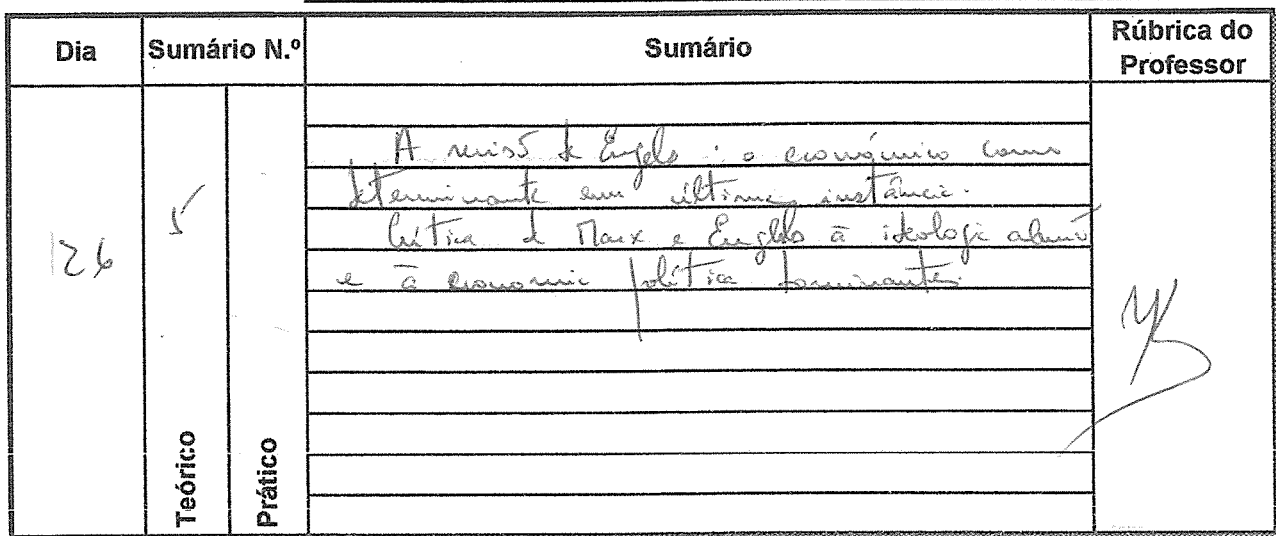 Dia Sumário N.º Sumário Rúbrica do Professor
26 5
A revisão de Engels: o económico como
determinante em última instância.
Crítica de Marx e Engels à ideologia alemã
e à economia política dominantes.
Teórico
Prático